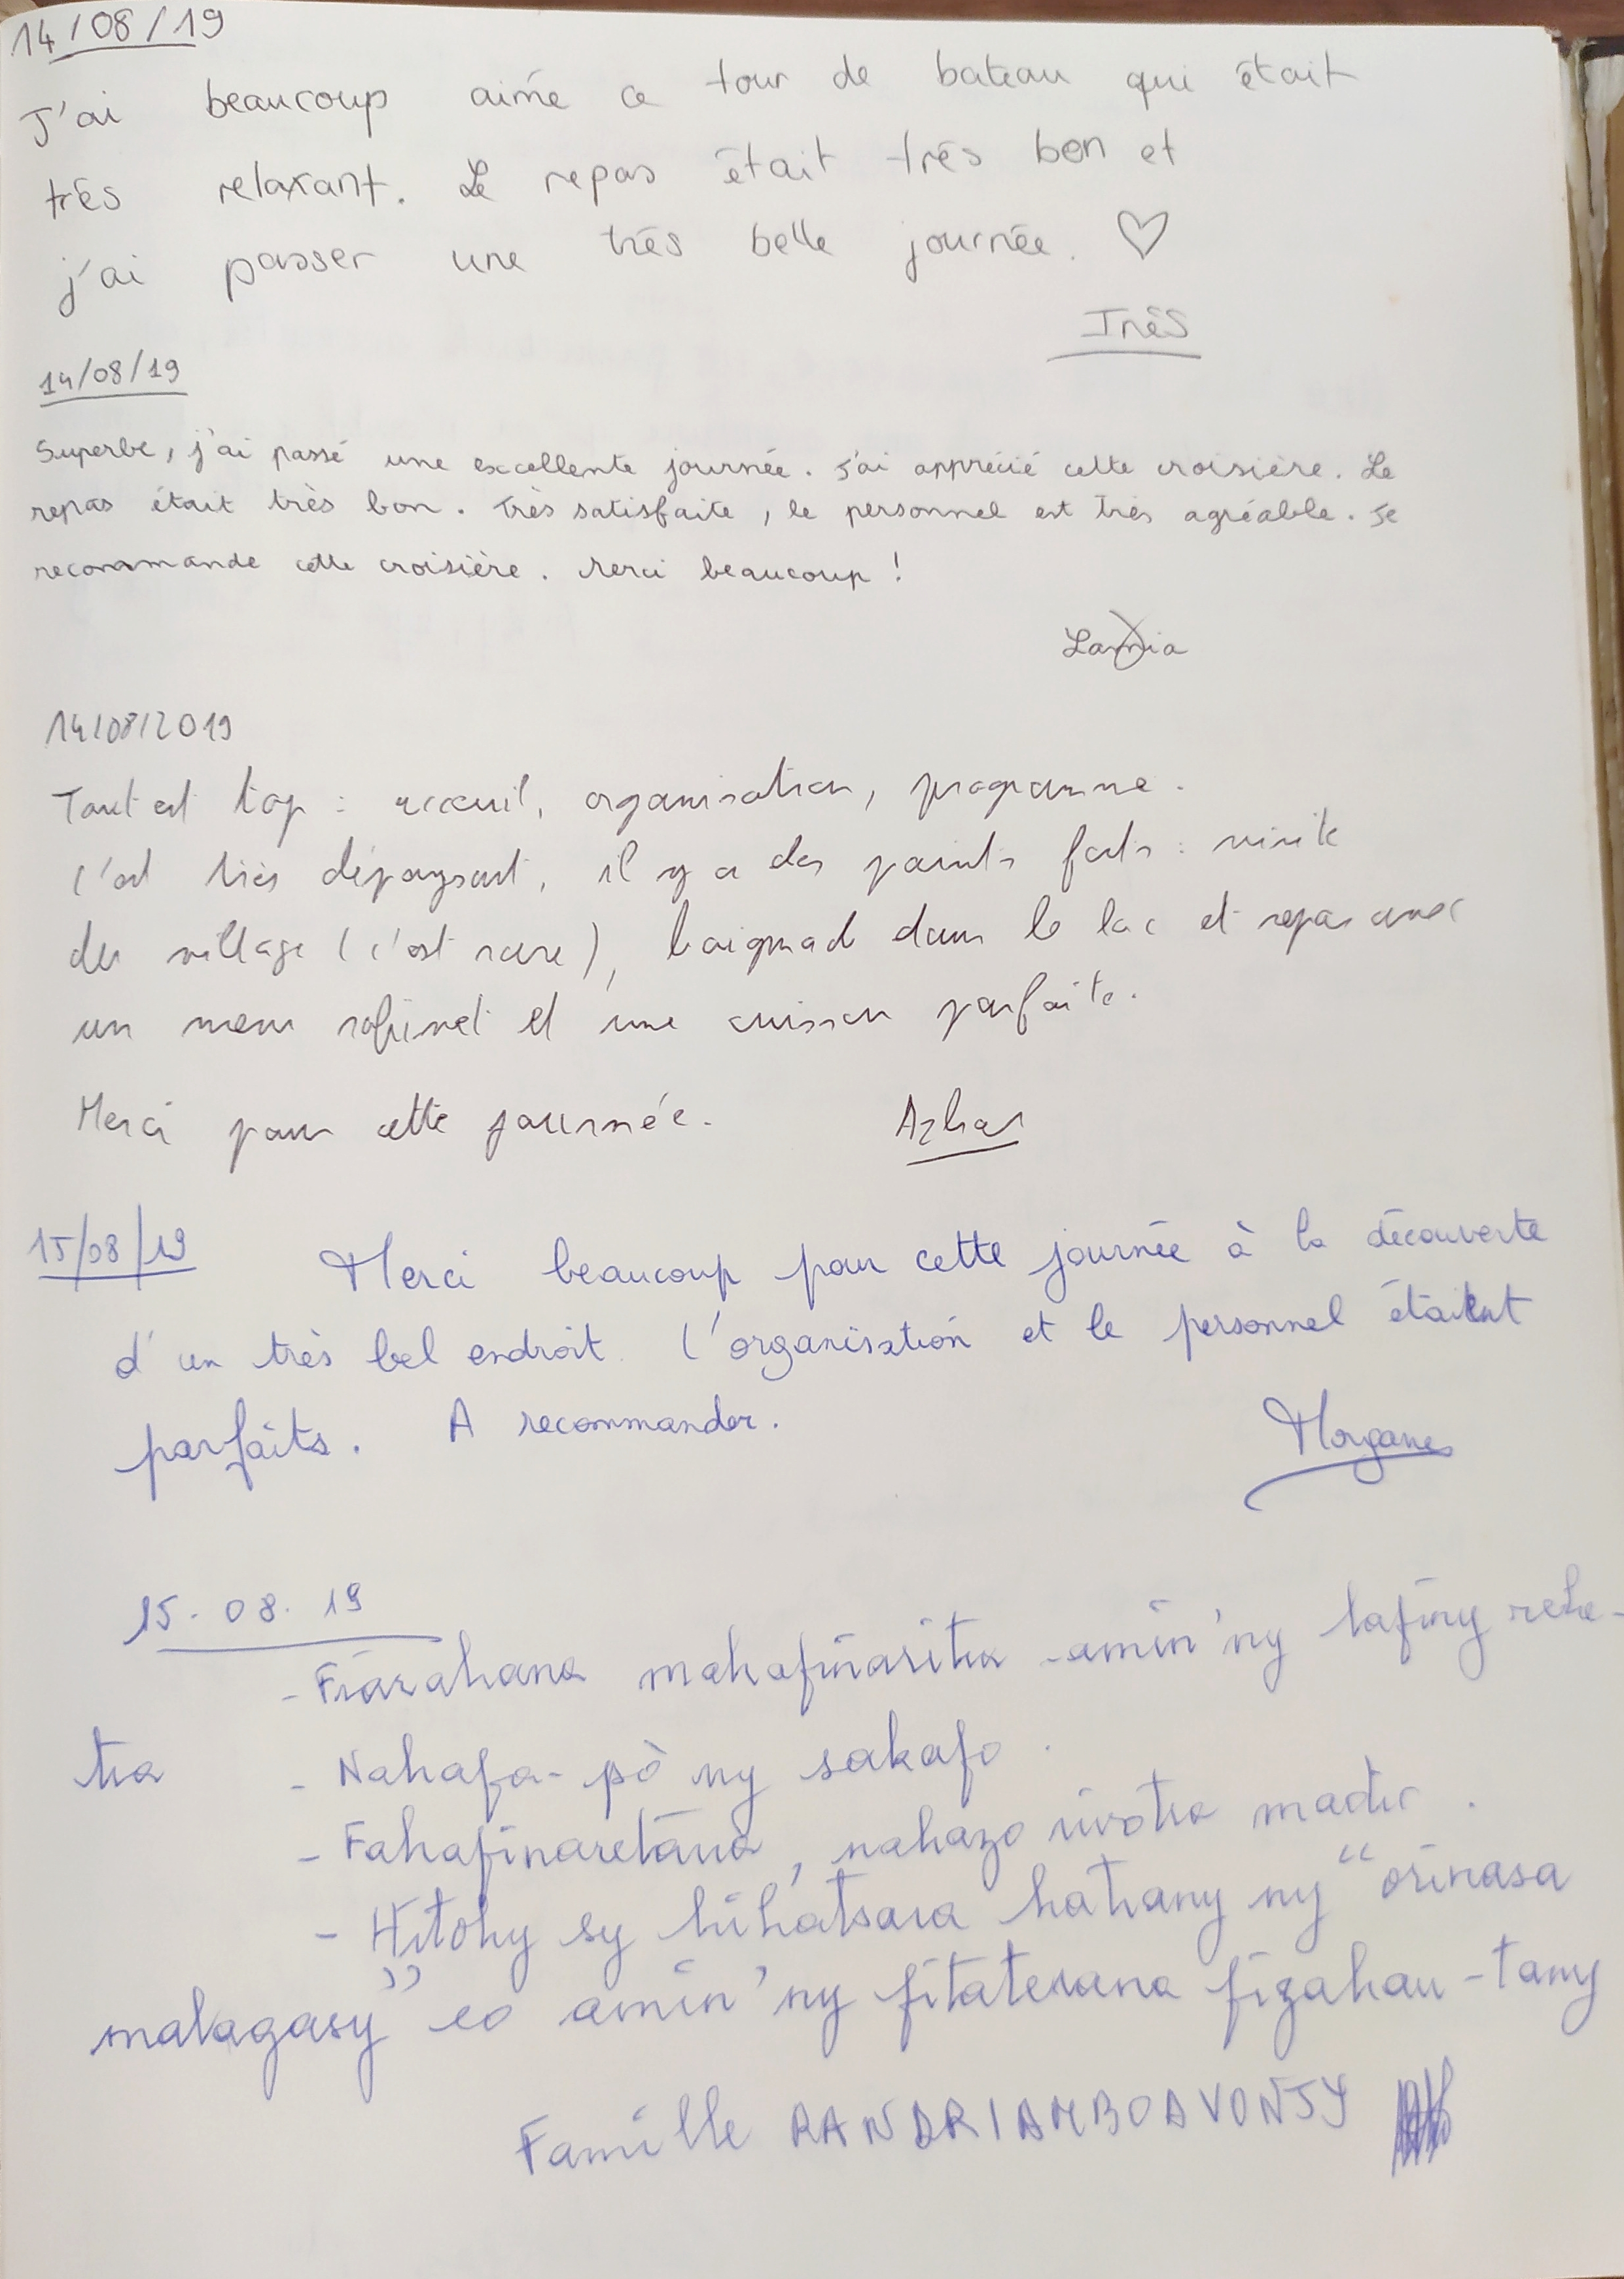 14/08/19
J'ai beaucoup aimé ce tour de bateau qui était
très relaxant. Le repas était très bon et
j'ai passer une très belle journée. ♡
Inès
14/08/19
Superbe, j'ai passé une excellente journée. J'ai apprécié cette croisière. Le
repas était très bon. Très satisfaite, le personnel est très agréable. Je
recommande cette croisière. Merci beaucoup !
Lamia
14/08/2019
Tout est top : acceuil, organisation, programme.
C'est très dépaysant, il y a des points forts : visite
du village (c'est rare), baignade dans le lac et repas avec
un menu rafiné et une cuisson parfaite.
Merci pour cette journée. Azhar
15/08/19 Merci beaucoup pour cette journée à la découverte
d'un très bel endroit. L'organisation et le personnel étaient
parfaits. A recommander.
Morgane
15.08.19
- Fiarahana mahafinaritra amin'ny lafiny rehe-
tra - Nahafa-pò ny sakafo.
- Fahafinaretana, nahazo rivotra madio.
- Hitohy sy hihatsara hatrany ny "orinasa
malagasy" eo amin'ny fitaterana fizahan-tany
Famille RANDRIAMBOAVONJY